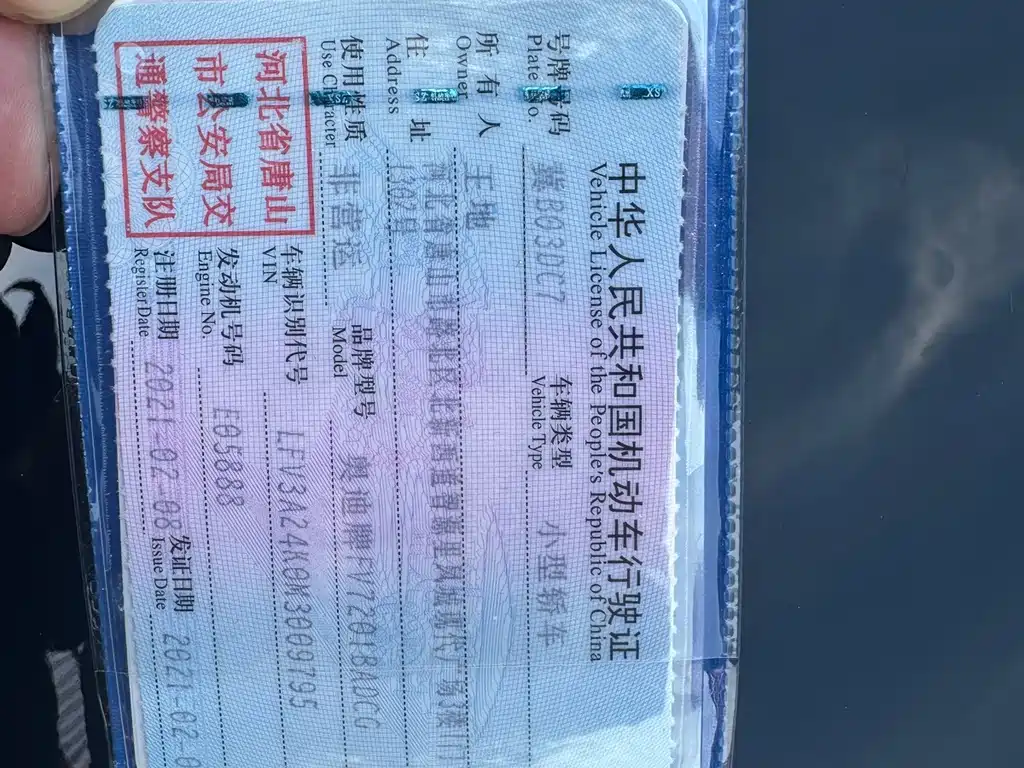 中华人民共和国机动车行驶证
Vehicle License of the People's Republic of China
号牌号码 冀B03DC7 车辆类型 小型轿车
Plate No. Vehicle Type
所有人 王地
Owner
住址 河北省唐山市路北区北新西道智源里凤城现代广场3楼1门
Address 1302号
使用性质 非营运 品牌型号 奥迪牌FV7201BADCG
Use Character Model
河北省唐山
市公安局交
通警察支队
车辆识别代号 LFV3A24K0M3009795
VIN
发动机号码 E05888
Engine No.
注册日期 2021-02-08 发证日期 2021-02-0
Register Date Issue Date